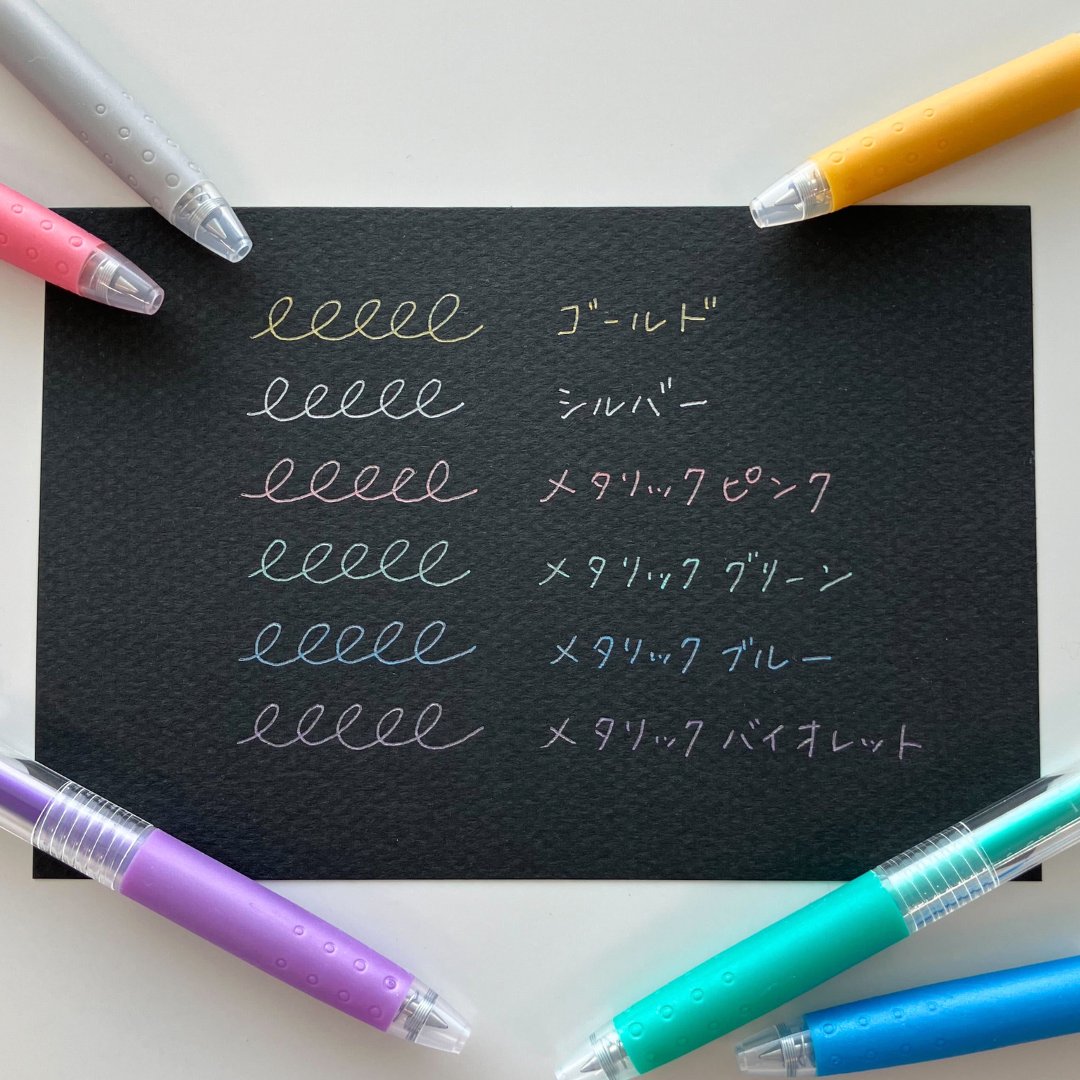 ゴールド
シルバー
メタリックピンク
メタリックグリーン
メタリックブルー
メタリックバイオレット